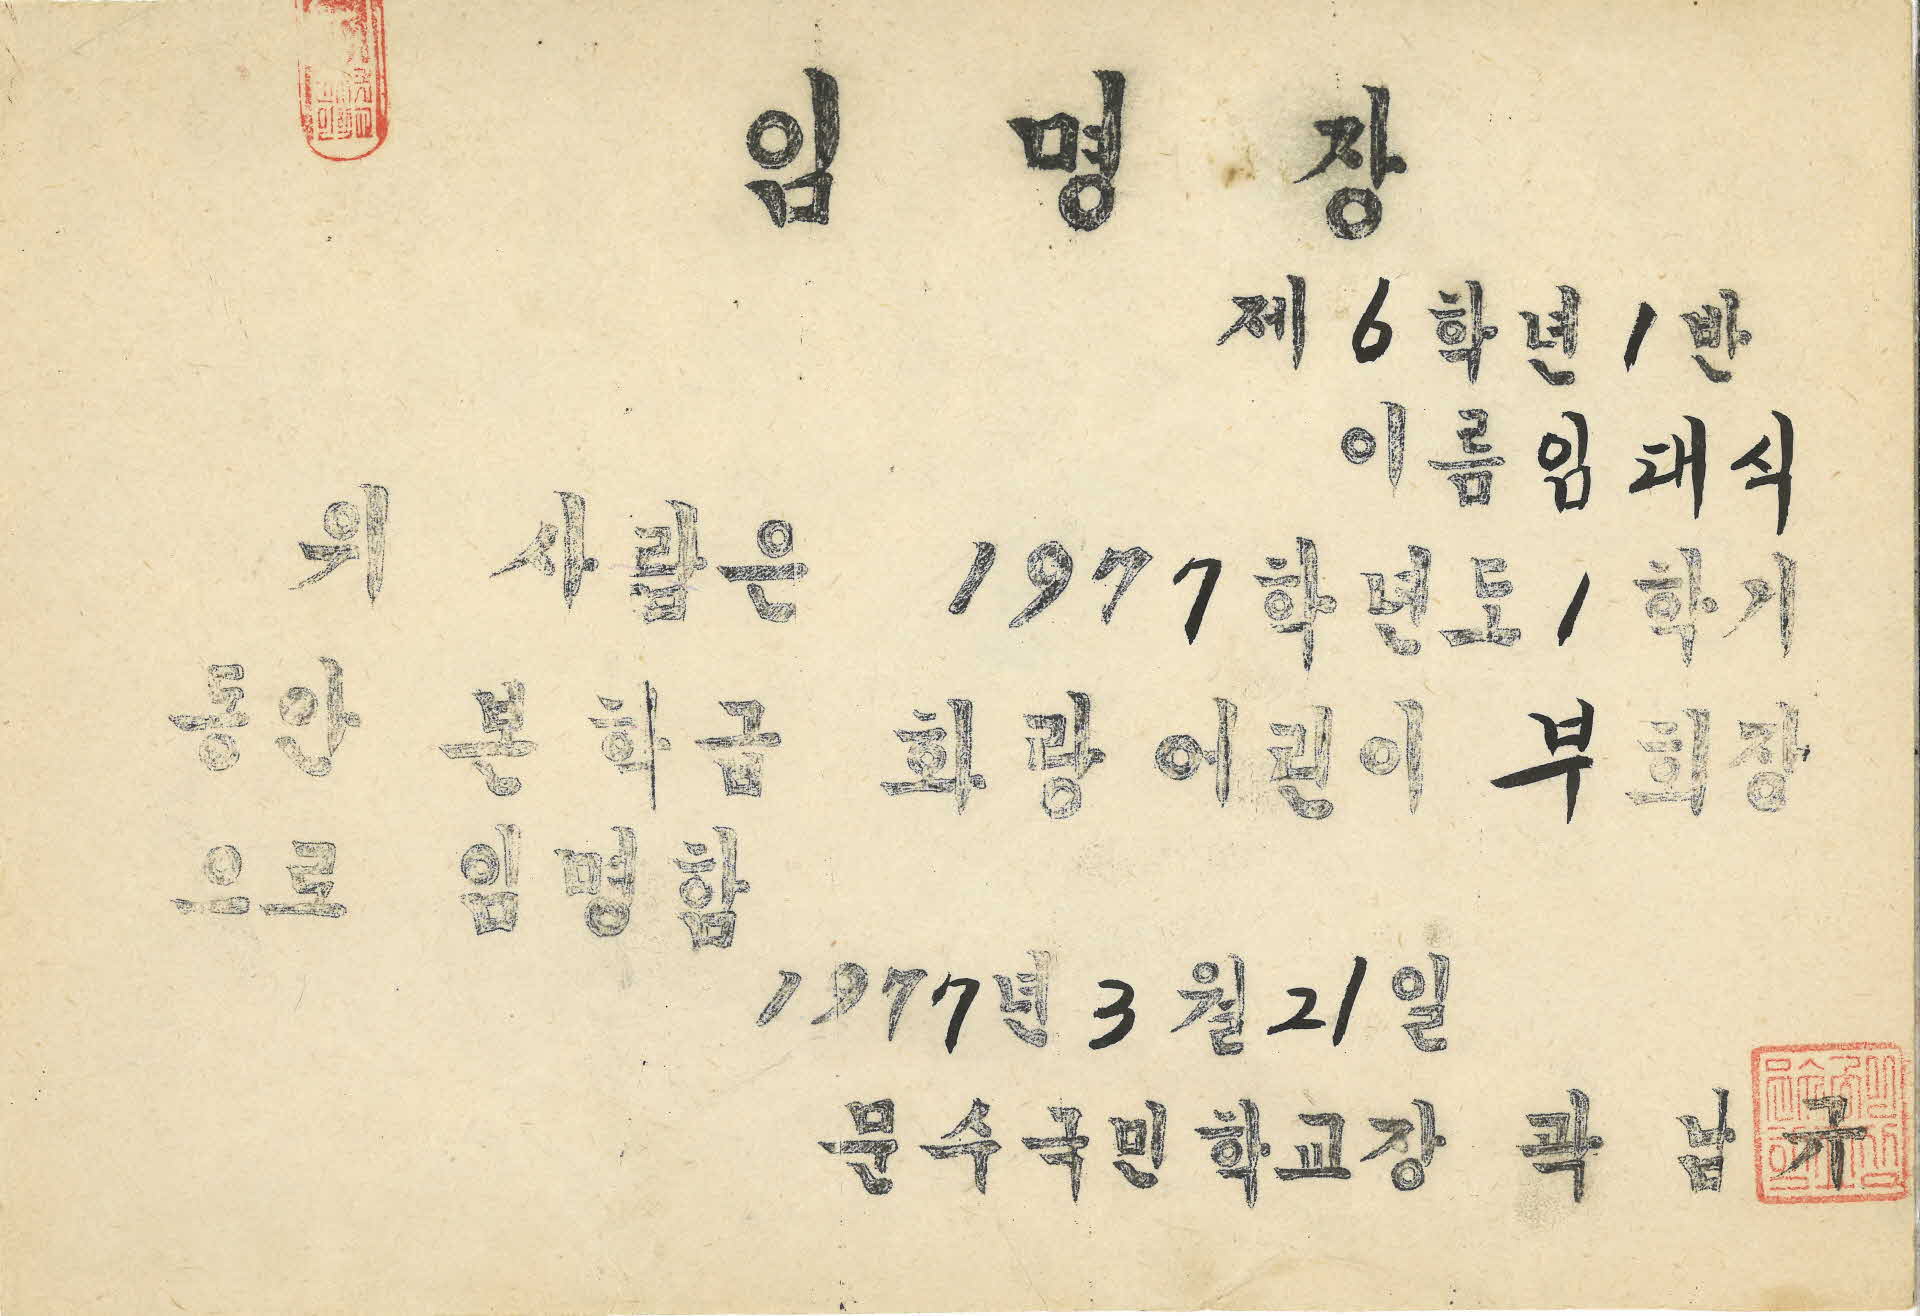 임명장
제6학년1반
이름 임대식
위 사람은 1977학년도 1학기
동안 본학급 화랑어린이 부회장
으로 임명함
1977년 3월 21일
문수국민학교장 곽남규